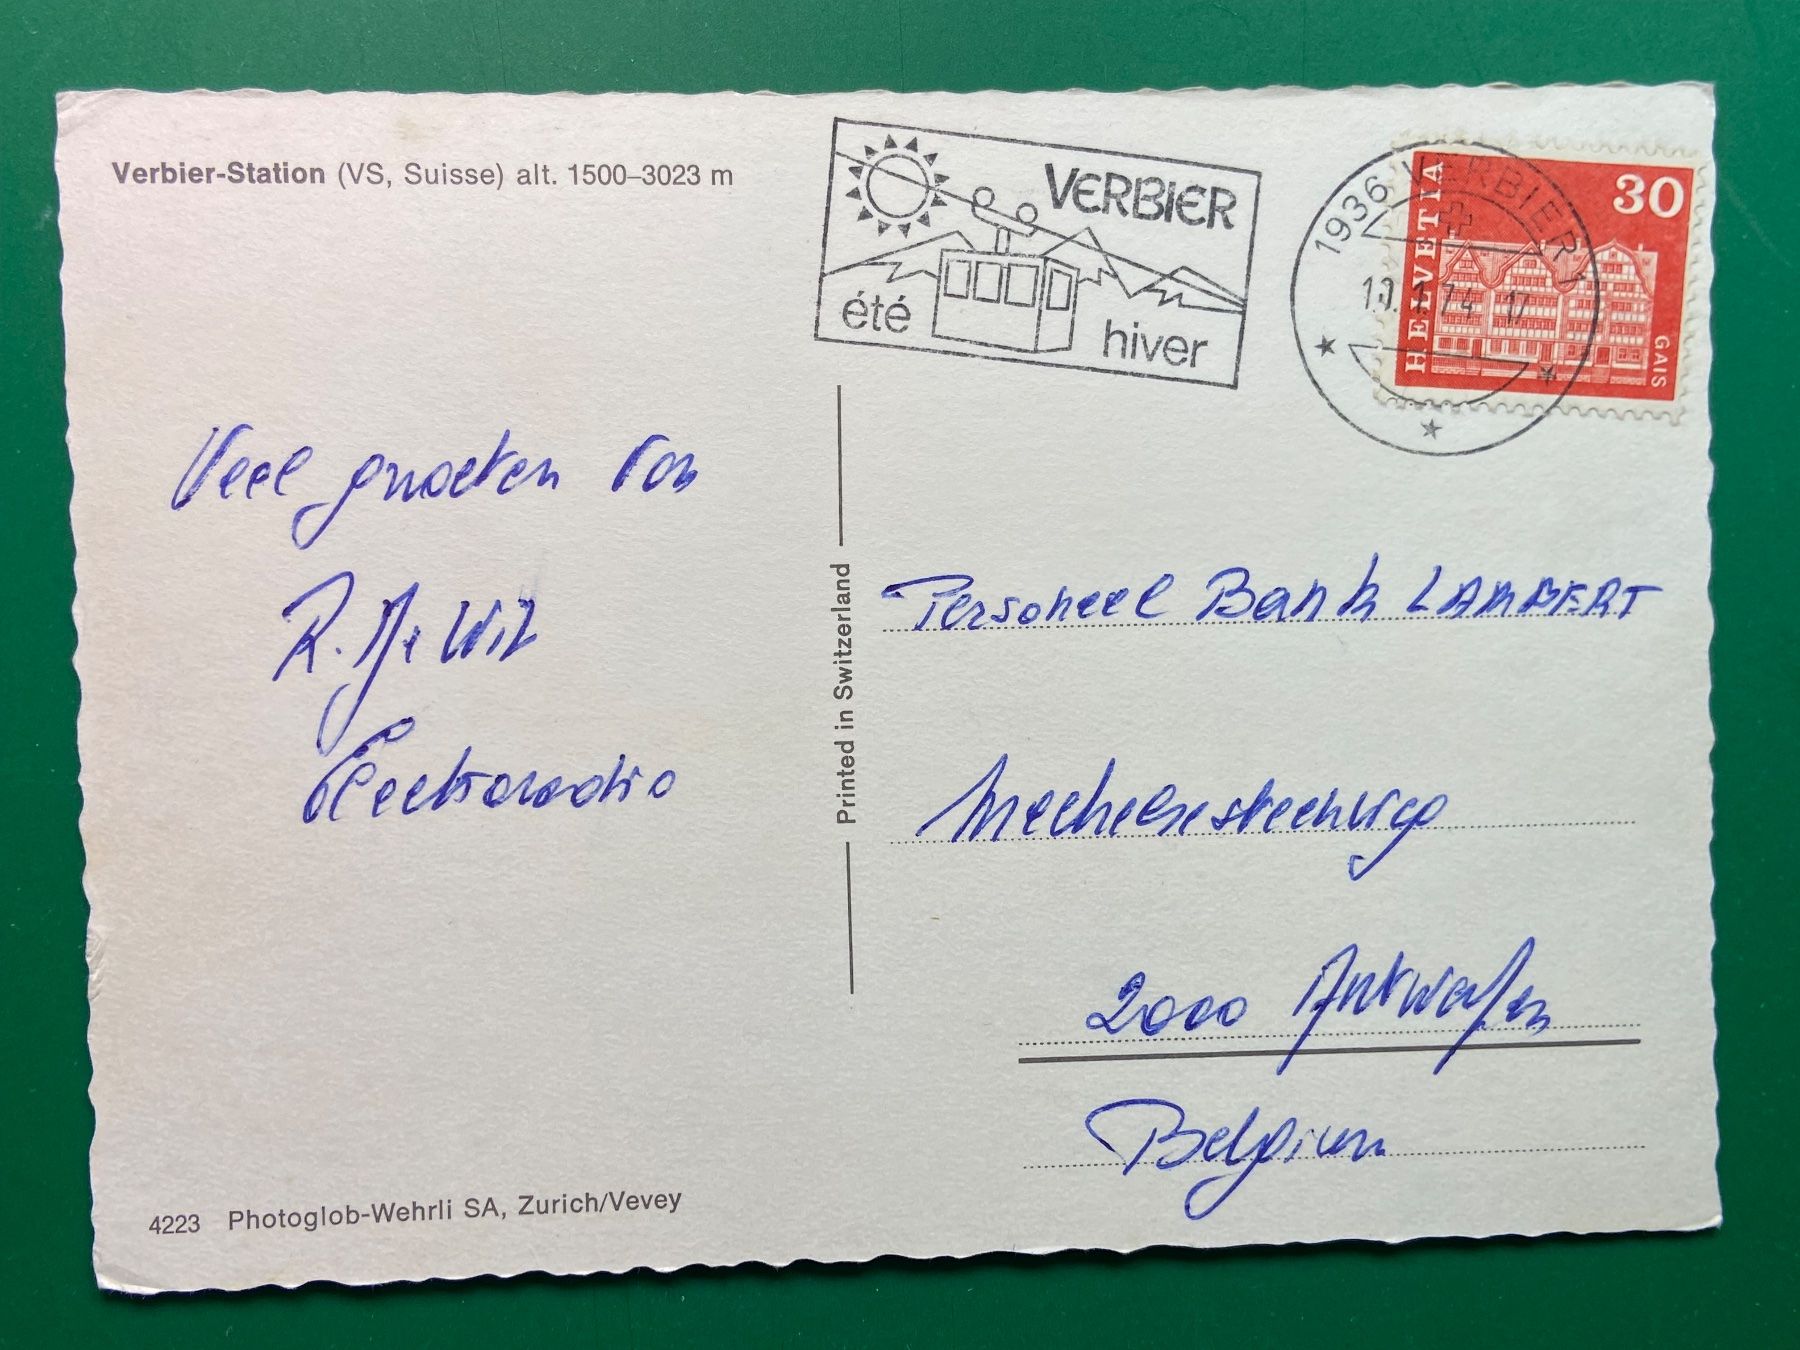 Verbier-Station (VS, Suisse) alt. 1500–3023 m
VERBIER
été
hiver
1936 VERBIER 1
1.74 17
30
HELVETIA
GAIS
Veel groeten van
R. De Wit
Electroradio
Printed in Switzerland
Personeel Bank LAMBERT
Mechelsesteenweg
2000 Antwerpen
Belgium
4223 Photoglob-Wehrli SA, Zurich/Vevey